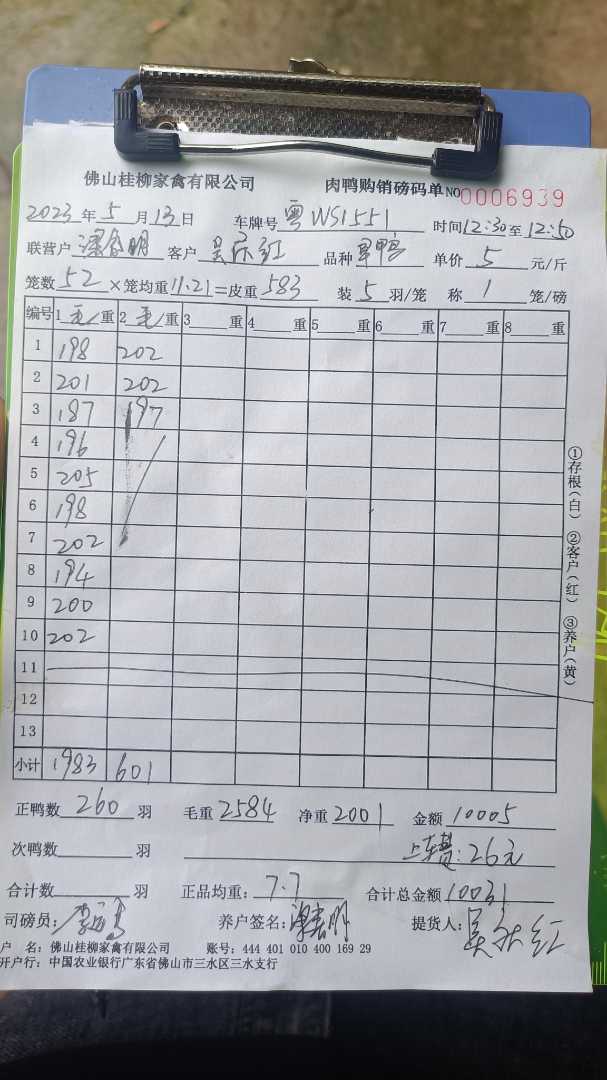 佛山桂柳家禽有限公司 肉鸭购销磅码单 NO 0006939
2023年5月13日 车牌号 粤WS1551 时间12:30至12:50
联营户 客户 吴 红 品种 鸭 单价 5 元/斤
笼数 52 ×笼均重 11.21 =皮重 583 装 5 羽/笼 称 1 笼/磅
编号 1 毛/重 2 毛/重 3 重 4 重 5 重 6 重 7 重 8 重
1 198 202
2 201 202
3 187 197
4 196
5 205
6 198
7 202
8 194
9 200
10 202
11
12
13
小计 1983 601
正鸭数 260 羽 毛重 2584 净重 2001 金额 10005
次鸭数 羽 上车费:26元
合计数 羽 正品均重: 7.7 合计总金额 10031
司磅员: 李 养户签名: 明 提货人: 吴 红
户 名: 佛山桂柳家禽有限公司 账号: 444 401 010 400 169 29
开户行: 中国农业银行广东省佛山市三水区三水支行
①存根(白) ②客户(红) ③养户(黄)